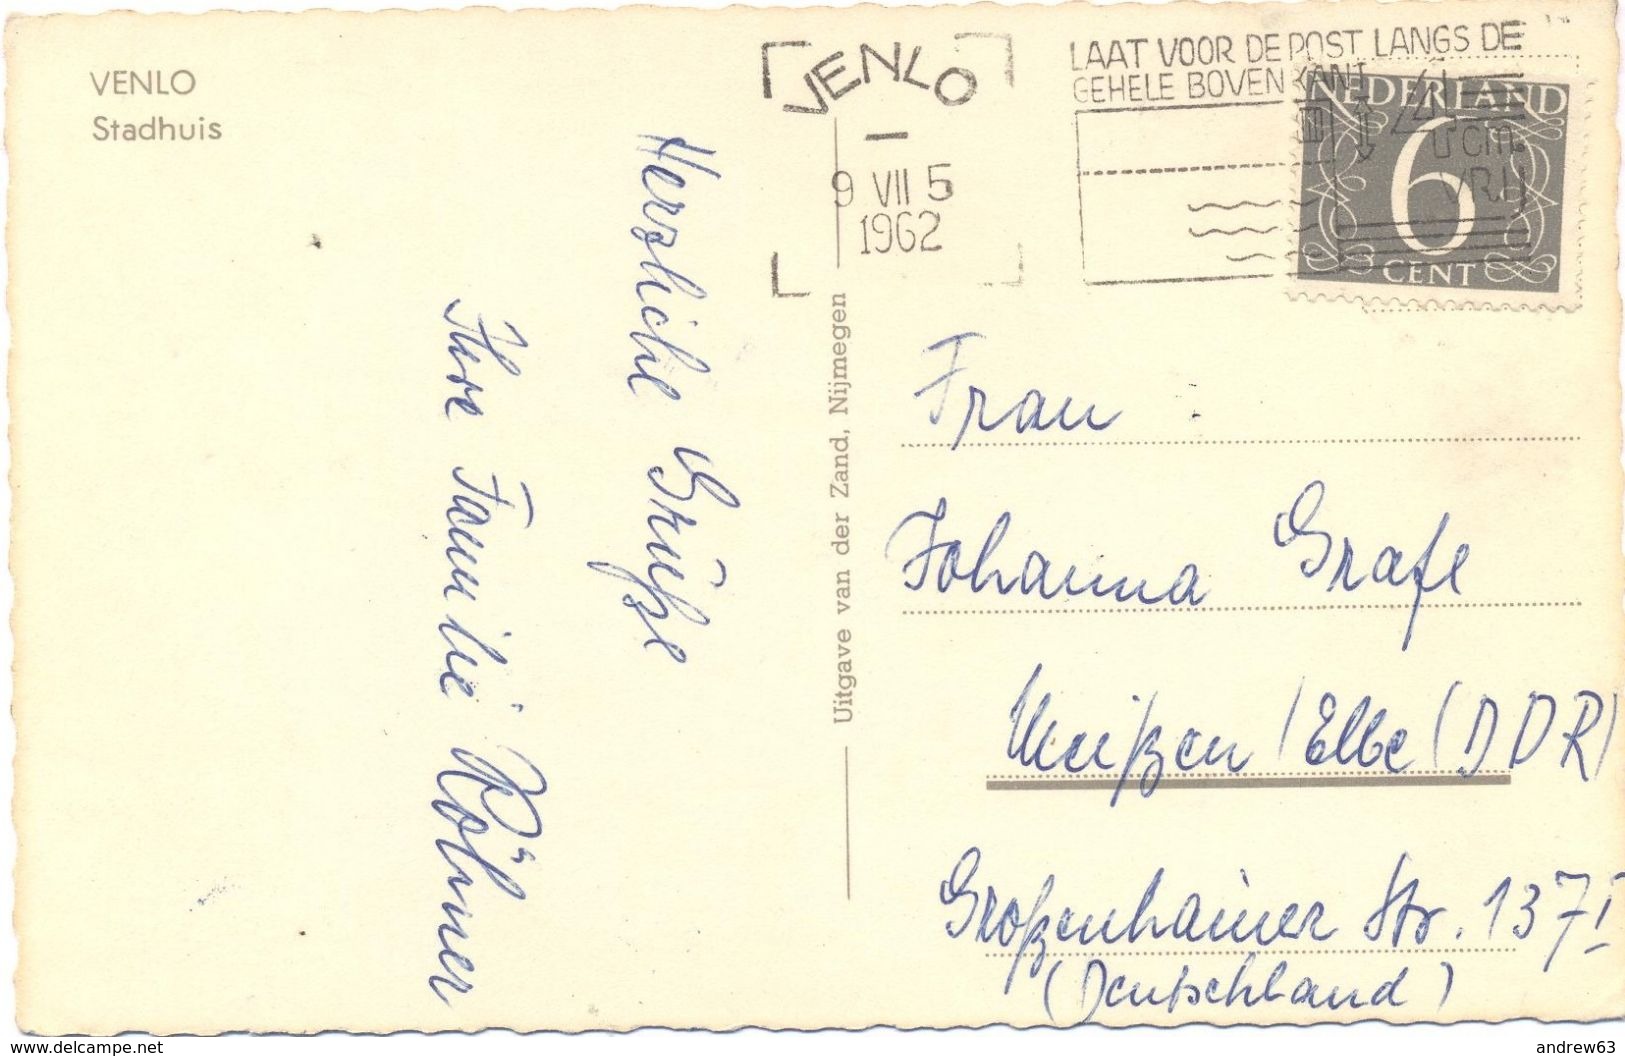 VENLO
Stadhuis
VENLO
9 VII 5
1962
LAAT VOOR DE POST LANGS DE
GEHELE BOVENKANT
4
cm.
VRIJ
NEDERLAND
6
CENT
Herzliche Grüße
Ihre Familie Köhner
Uitgave van der Zand, Nijmegen
Frau
Johanna Grafe
Meißen/Elbe (DDR)
Großenhainer Str. 137 I
(Deutschland)
www.delcampe.net
andrew63